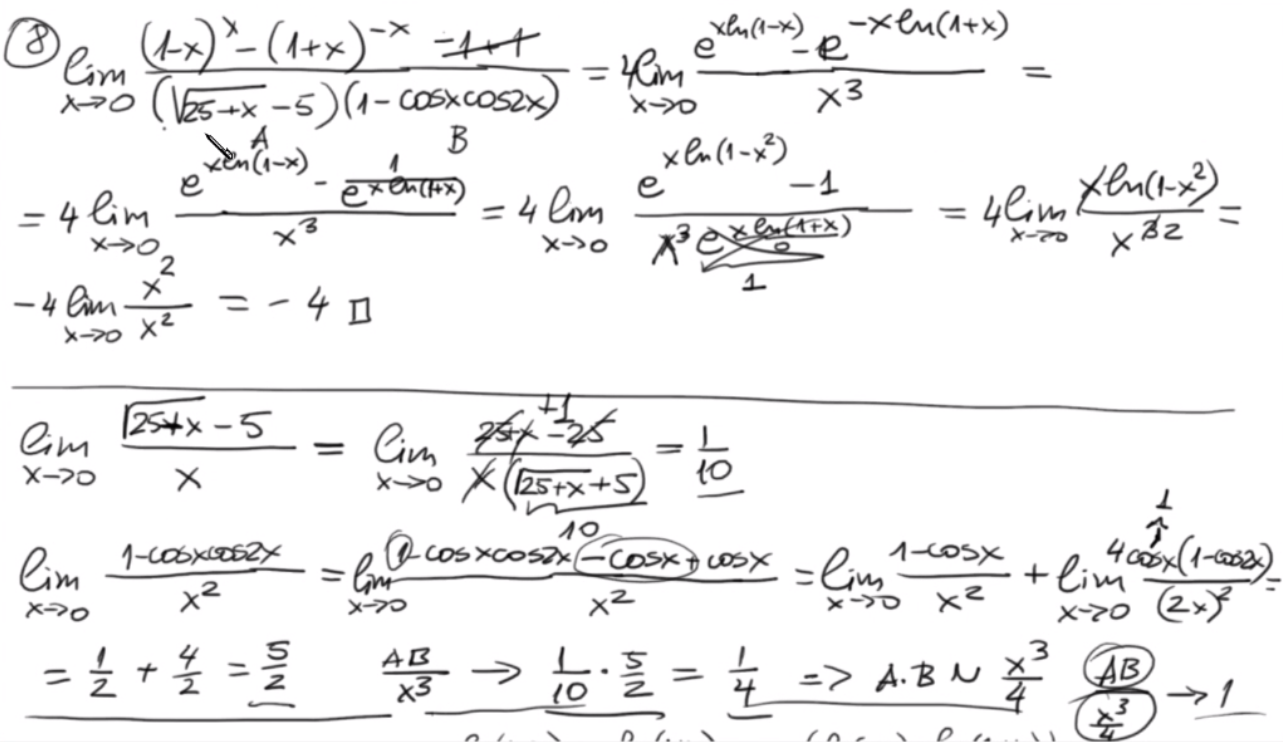 ⑧ lim x→0 ((1-x)^x - (1+x)^(-x) -1+1) / ((√(25+x) -5)(1-cosxcos2x)) = 4lim x→0 (e^(xln(1-x)) - e^(-xln(1+x))) / x³ =
A B
= 4 lim x→0 (e^(xln(1-x)) - 1/e^(xln(1+x))) / x³ = 4 lim x→0 (e^(xln(1-x²)) - 1) / (x³ e^(xln(1+x))) = 4lim x→0 xln(1-x²) / x³ 2 =
0
1
-4 lim x→0 x²/x² = -4 □
lim x→0 (√(25+x) - 5) / x = lim x→0 (25+x -25 +1) / (x(√(25+x)+5)) = 1/10
10
1
lim x→0 (1-cosxcos2x) / x² = lim x→0 (1-cosxcos2x -cosx+cosx) / x² = lim x→0 (1-cosx) / x² + lim x→0 4cosx(1-cos2x) / (2x)² =
= 1/2 + 4/2 = 5/2 AB/x³ → 1/10 · 5/2 = 1/4 => A.B ~ x³/4 AB/(x³/4) → 1